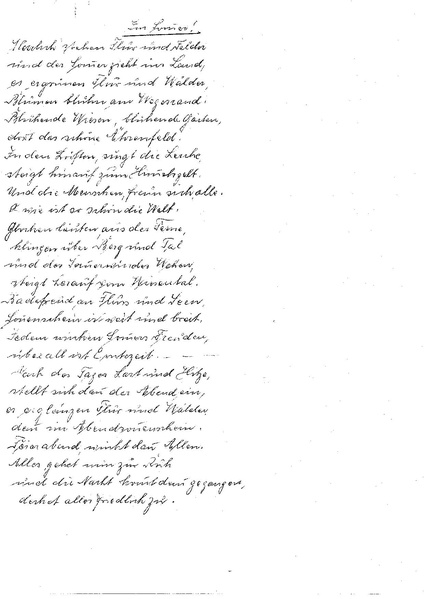 im Somer!
Herrlich stehen Flur und Felder
und der Somer zieht ins Land,
es ergrünen Flur und Wälder,
Blumen blühn am Wegesrand.
Blühende Wiesen, blühende Gärten,
dort das schöne Ährenfeld.
In den Lüften, singt die Lerche,
steigt hinauf zum Himelszelt.
Und die Menschen, freun sich alle.
O wie ist er schön die Welt.
Glocken läuten, aus der Ferne,
klingen über Berg und Tal
und des Somerwindes Wehen,
steigt herauf vom Wiesental.
Badefreud, an Fluss und Seen,
Sonenschein ist weit und breit,
Jedem winken Somers Freuden,
überall ist Erntezeit.
Nach des Tages Last und Hitze,
stellt sich dan der Abend ein,
es erglänzen Flur und Wälder
den im Abendsonenschein.
Feierabend, winkt dan Allen.
Alles gehet nun zur Ruh
und die Nacht komt dan gegangen,
decket alles friedlich zu.